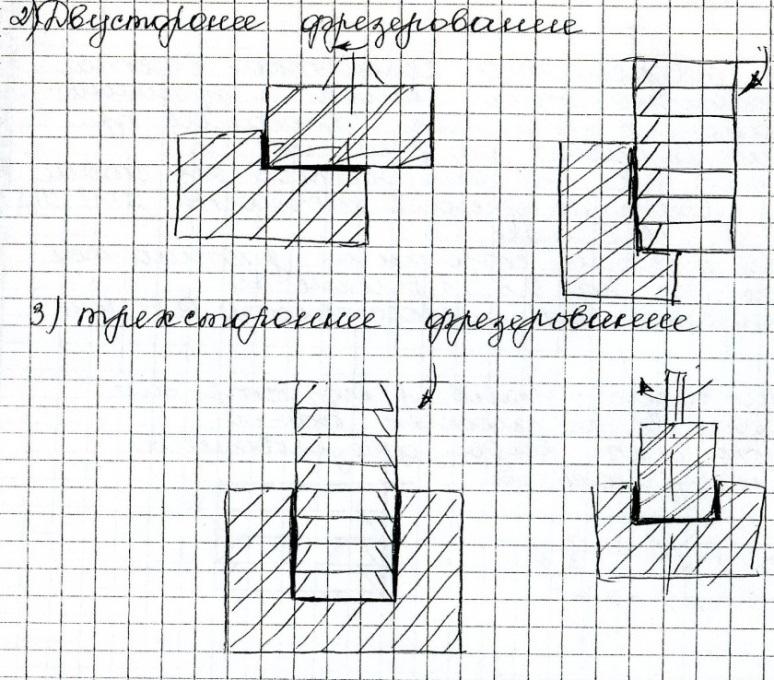 2) Двусторонее фрезерование
3) трехстороннее фрезерование